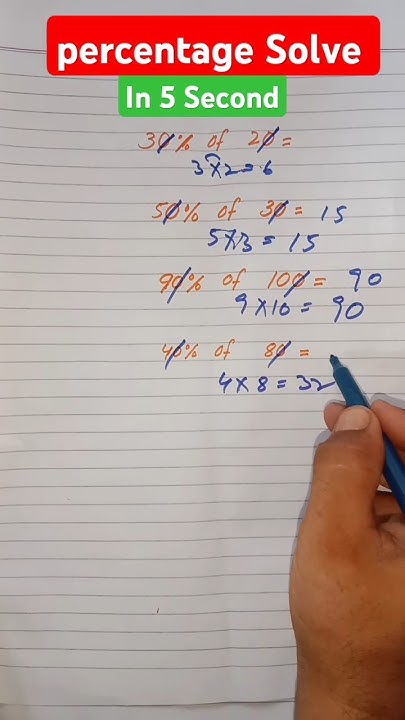 percentage Solve
In 5 Second
30% of 20 =
3x2=6
50% of 30 = 15
5x3 = 15
90% of 100 = 90
9 x 10 = 90
40% of 80 =
4 x 8 = 32